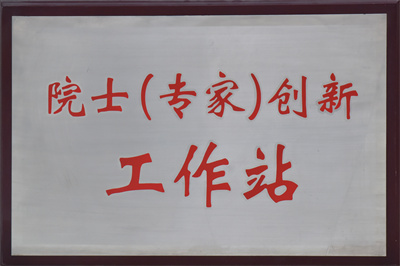 院士(专家)创新
工作站